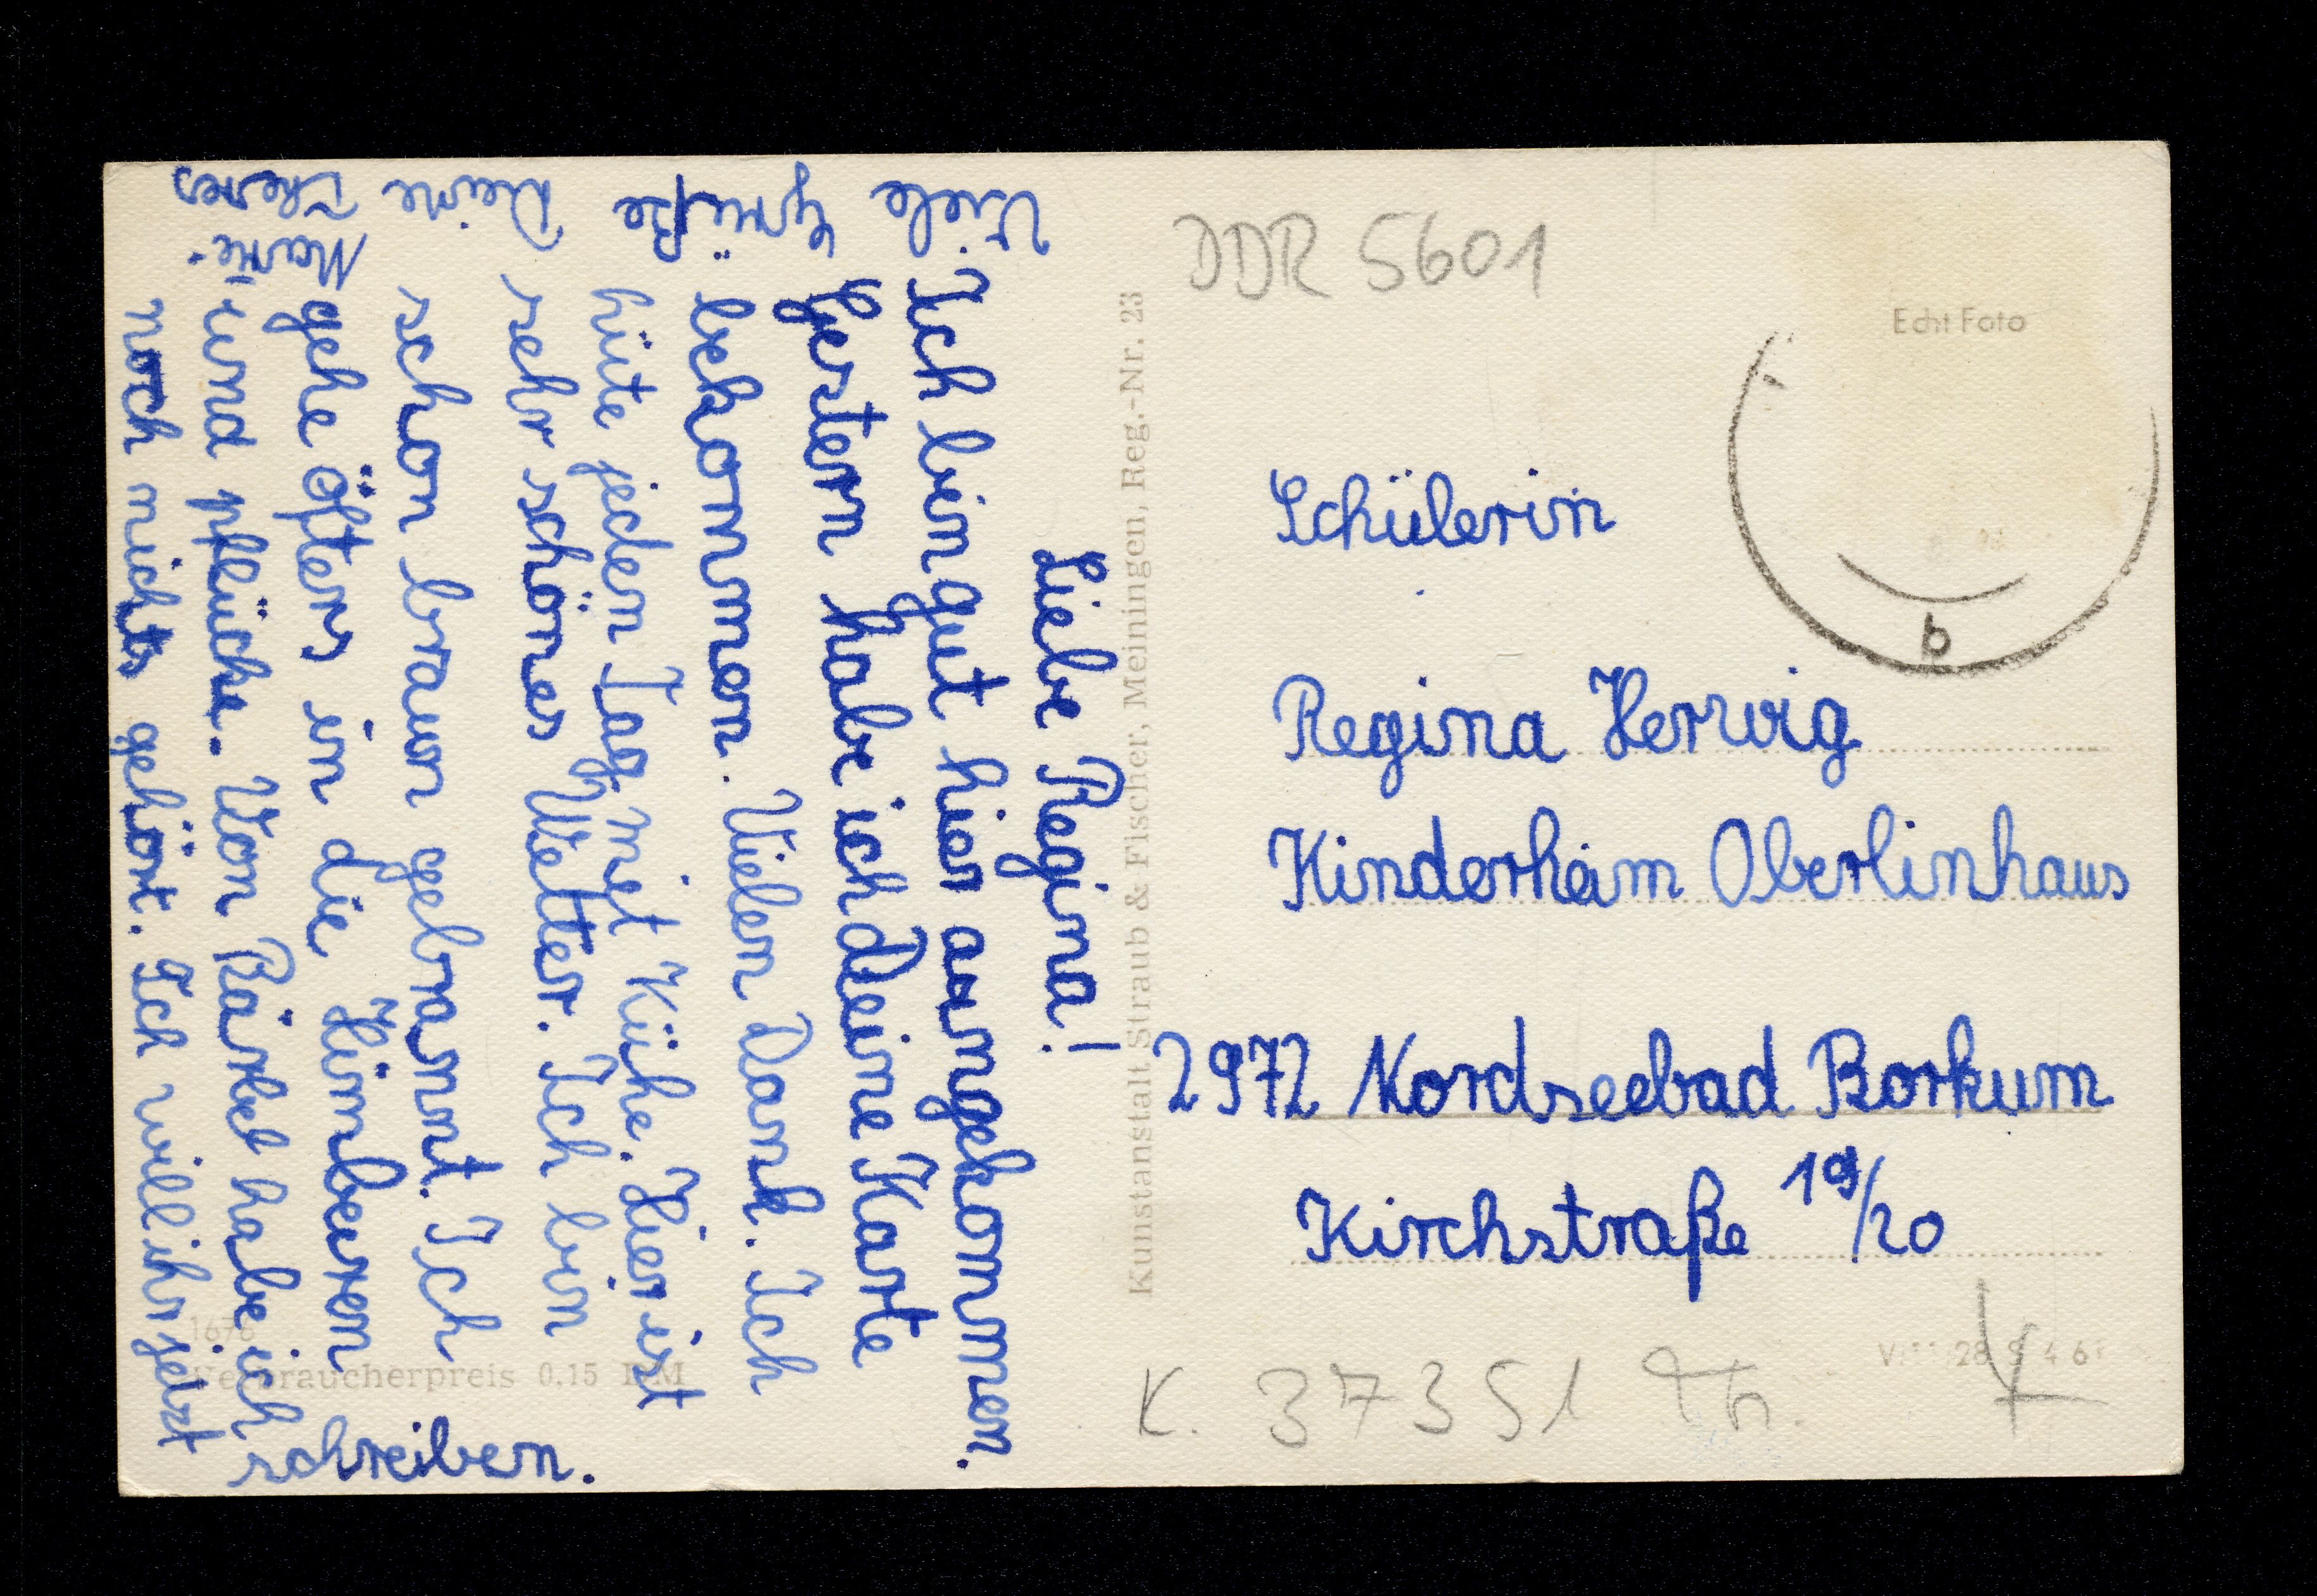 Liebe Regina!
Ich bin gut hier angekommen.
Gestern habe ich Deine Karte
bekommen. Vielen Dank. Ich
hüte jeden Tag mit Kühe. Hier ist
sehr schönes Wetter. Ich bin
schon braun gebrannt. Ich
gehe öfters in die Himbeeren
und pflücke. Von Bärbel habe ich
noch nichts gehört. Ich will ihr jetzt
schreiben.
Viele
Grüße
Deine
Theres
Marie.
Kunstanstalt Straub & Fischer, Meiningen, Reg.-Nr. 23
1676
Verbraucherpreis 0.15 DM
DDR 5601
Echt Foto
b
Schülerin
Regina Herwig
Kinderheim Oberlinhaus
2972 Nordseebad Borkum
Kirchstraße 19/20
K. 37351 Th.